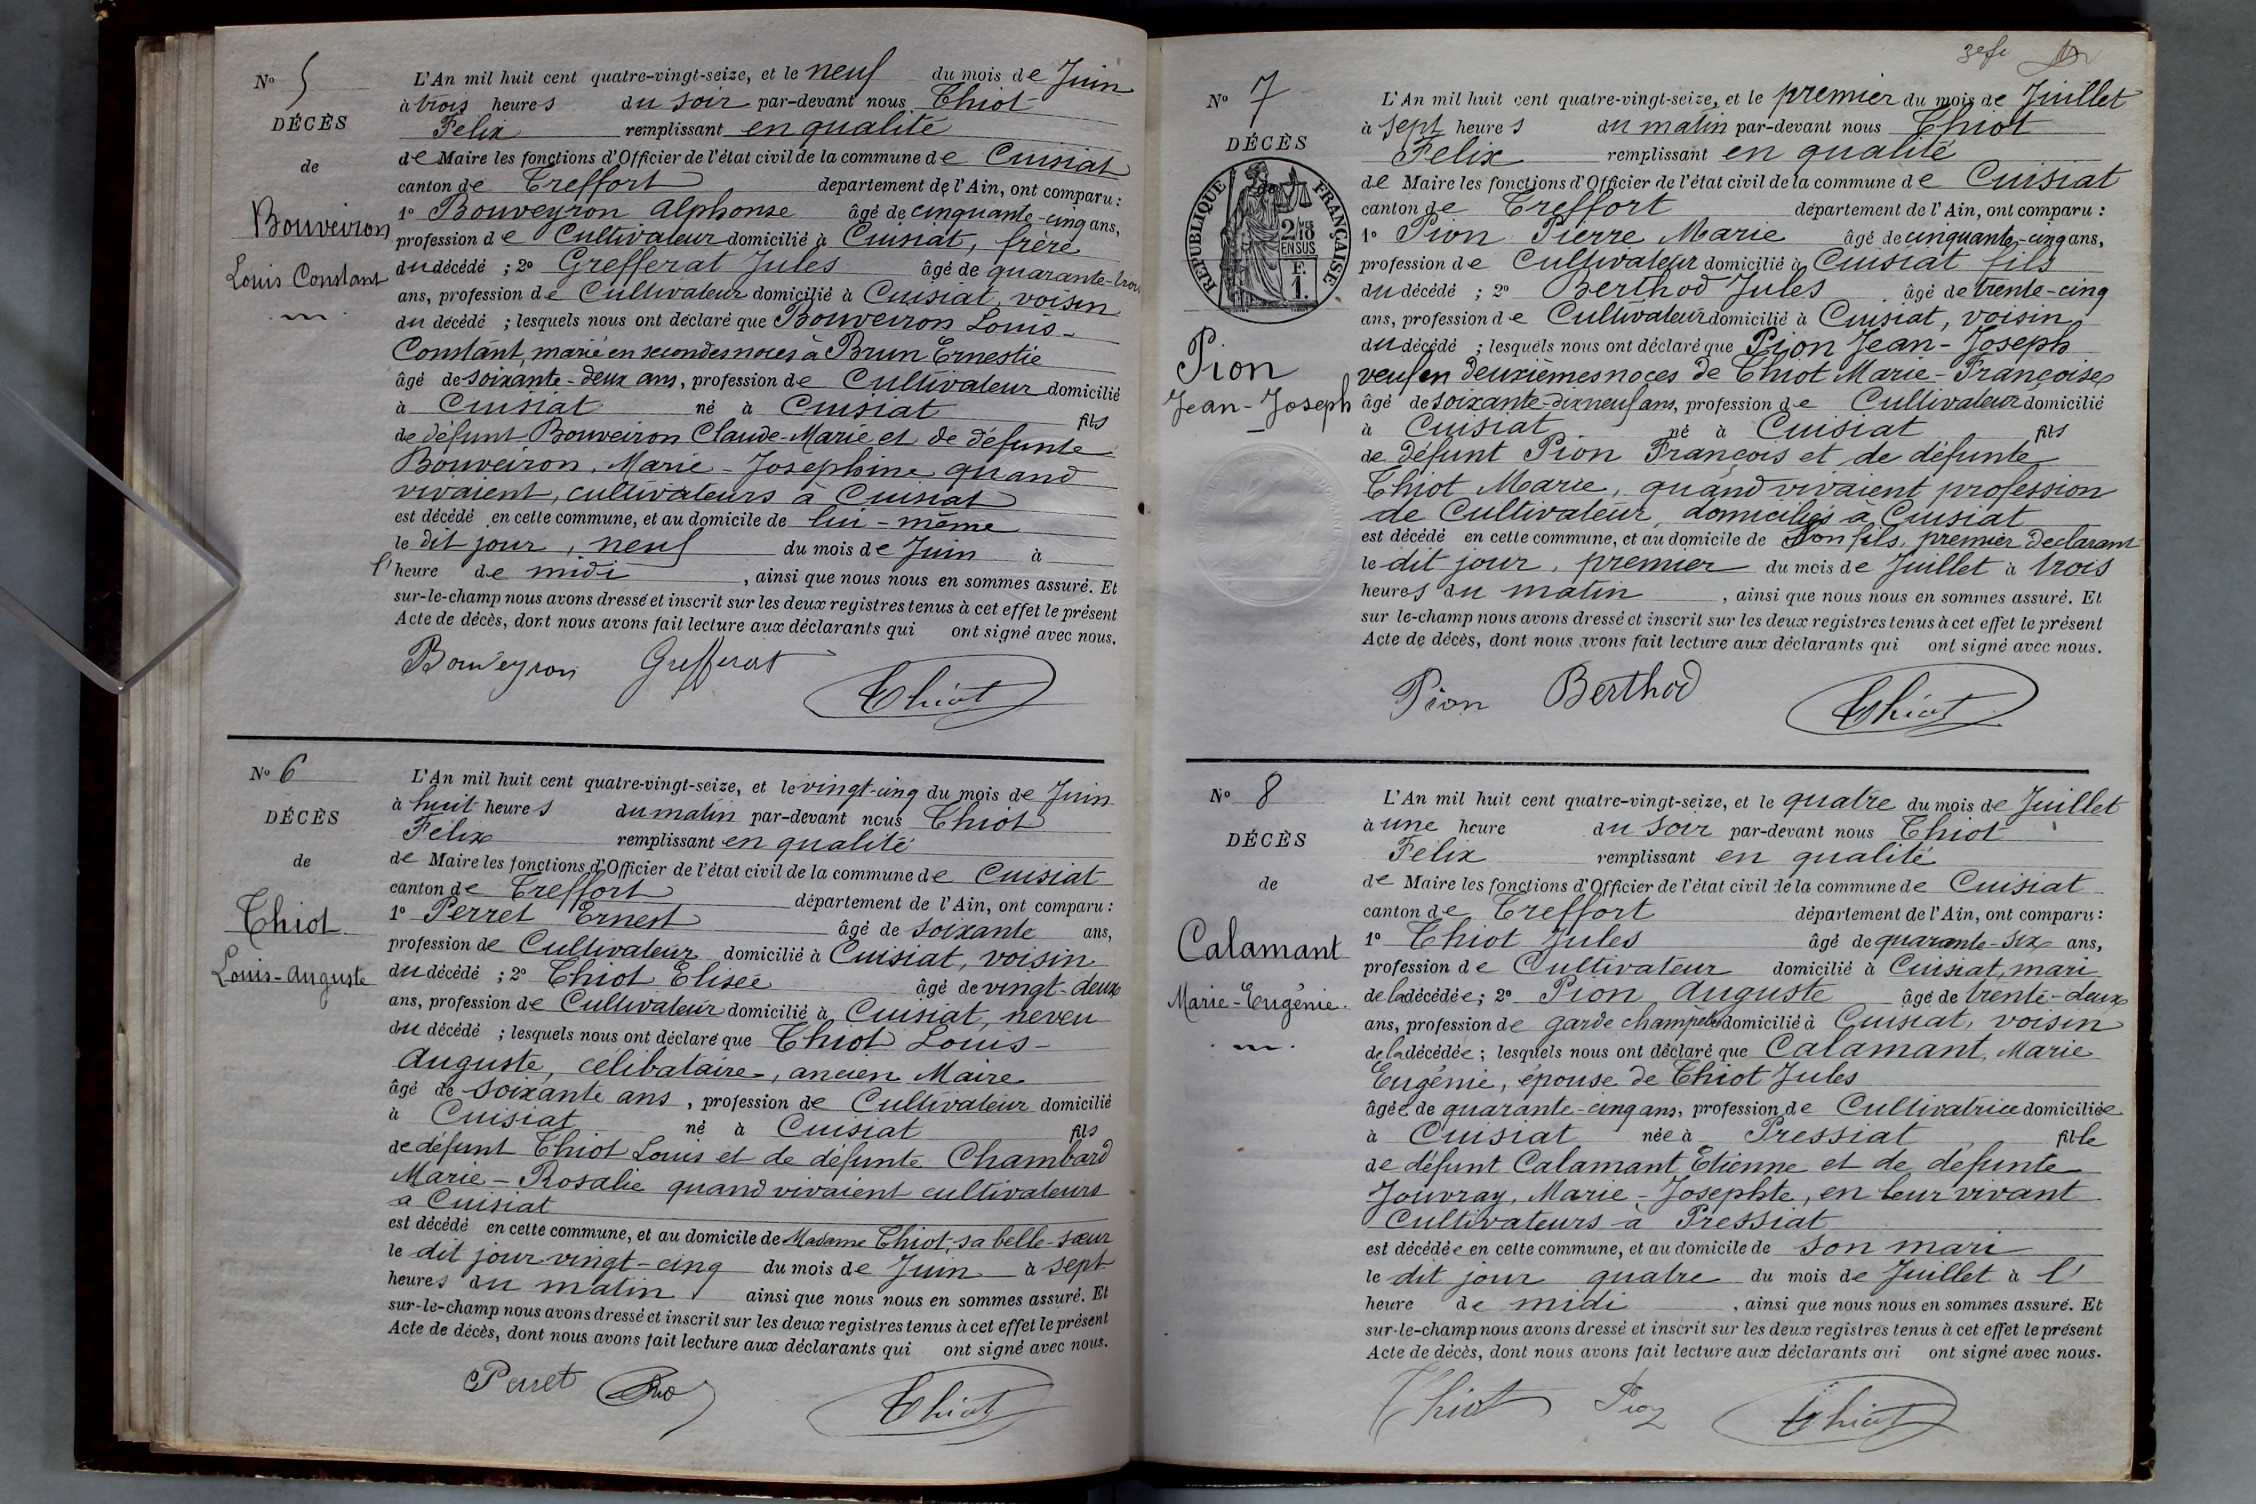 N° 5
DÉCÈS
de
Bouveiron
Louis Constant
L'An mil huit cent quatre-vingt-seize, et le neuf du mois de Juin
à trois heures du soir par-devant nous Thiot
Felix remplissant en qualité
de Maire les fonctions d'Officier de l'état civil de la commune de Cuisiat
canton de Treffort département de l'Ain, ont comparu :
1° Bouveyron Alphonse âgé de cinquante-cinq ans,
profession de Cultivateur domicilié à Cuisiat, frère
du décédé ; 2° Grefferat Jules âgé de quarante-trois
ans, profession de Cultivateur domicilié à Cuisiat, voisin
du décédé ; lesquels nous ont déclaré que Bouveiron Louis-
Constant, marié en secondes noces à Brun Ernestie
âgé de soixante-deux ans, profession de Cultivateur domicilié
à Cuisiat né à Cuisiat fils
de défunt Bouveiron Claude-Marie et de défunte
Bouveiron, Marie-Josephine quand
vivaient, cultivateurs à Cuisiat
est décédé en cette commune, et au domicile de lui-même
le dit jour, neuf du mois de Juin à
l'heure de midi, ainsi que nous nous en sommes assuré. Et
sur-le-champ nous avons dressé et inscrit sur les deux registres tenus à cet effet le présent
Acte de décès, dont nous avons fait lecture aux déclarants qui ont signé avec nous.
Bouveyron Grefferat Thiot
N° 6
DÉCÈS
de
Thiot
Louis-Auguste
L'An mil huit cent quatre-vingt-seize, et le vingt-cinq du mois de Juin
à huit heures du matin par-devant nous Thiot
Felix remplissant en qualité
de Maire les fonctions d'Officier de l'état civil de la commune de Cuisiat
canton de Treffort département de l'Ain, ont comparu :
1° Perret Ernest âgé de soixante ans,
profession de Cultivateur domicilié à Cuisiat, voisin
du décédé ; 2° Thiot Elisée âgé de vingt-deux
ans, profession de Cultivateur domicilié à Cuisiat, neveu
du décédé ; lesquels nous ont déclaré que Thiot Louis-
Auguste, célibataire, ancien Maire
âgé de soixante ans, profession de Cultivateur domicilié
à Cuisiat né à Cuisiat fils
de défunt Thiot Louis et de défunte Chambard
Marie-Rosalie quand vivaient cultivateurs
à Cuisiat
est décédé en cette commune, et au domicile de Madame Thiot, sa belle-sœur
le dit jour vingt-cinq du mois de Juin à sept
heures du matin ainsi que nous nous en sommes assuré. Et
sur-le-champ nous avons dressé et inscrit sur les deux registres tenus à cet effet le présent
Acte de décès, dont nous avons fait lecture aux déclarants qui ont signé avec nous.
Perret Thiot
N° 7
DÉCÈS
RÉPUBLIQUE FRANÇAISE
2/10
EN SUS
F.
1.
Pion
Jean-Joseph
L'An mil huit cent quatre-vingt-seize, et le premier du mois de Juillet
à sept heures du matin par-devant nous Thiot
Felix remplissant en qualité
de Maire les fonctions d'Officier de l'état civil de la commune de Cuisiat
canton de Treffort département de l'Ain, ont comparu :
1° Pion Pierre Marie âgé de cinquante-cinq ans,
profession de Cultivateur domicilié à Cuisiat fils
du décédé ; 2° Berthod Jules âgé de trente-cinq
ans, profession de Cultivateur domicilié à Cuisiat, voisin
du décédé ; lesquels nous ont déclaré que Pion Jean-Joseph
veuf en deuxièmes noces de Thiot Marie-Françoise
âgé de soixante-dix neuf ans, profession de Cultivateur domicilié
à Cuisiat né à Cuisiat fils
de défunt Pion François et de défunte
Thiot Marie, quand vivaient profession
de Cultivateur, domiciliés à Cuisiat
est décédé en cette commune, et au domicile de Son fils, premier déclarant
le dit jour, premier du mois de Juillet à trois
heures du matin, ainsi que nous nous en sommes assuré. Et
sur le-champ nous avons dressé et inscrit sur les deux registres tenus à cet effet le présent
Acte de décès, dont nous avons fait lecture aux déclarants qui ont signé avec nous.
Pion Berthod Thiot
N° 8
DÉCÈS
de
Calamant
Marie-Eugénie.
L'An mil huit cent quatre-vingt-seize, et le quatre du mois de Juillet
à une heure du soir par-devant nous Thiot
Félix remplissant en qualité
de Maire les fonctions d'Officier de l'état civil de la commune de Cuisiat
canton de Treffort département de l'Ain, ont comparu :
1° Thiot Jules âgé de quarante-six ans,
profession de Cultivateur domicilié à Cuisiat, mari
de la décédée ; 2° Pion Auguste âgé de trente-deux
ans, profession de garde champêtre domicilié à Cuisiat, voisin
de la décédée ; lesquels nous ont déclaré que Calamant, Marie
Eugénie, épouse de Thiot Jules
âgée de quarante-cinq ans, profession de Cultivatrice domiciliée
à Cuisiat née à Pressiat fille
de défunt Calamant Etienne et de défunte
Jouvray, Marie-Josephte, en leur vivant
Cultivateurs à Pressiat
est décédée en cette commune, et au domicile de son mari
le dit jour quatre du mois de Juillet à l'
heure de midi, ainsi que nous nous en sommes assuré. Et
sur-le-champ nous avons dressé et inscrit sur les deux registres tenus à cet effet le présent
Acte de décès, dont nous avons fait lecture aux déclarants qui ont signé avec nous.
Thiot Pion Thiot